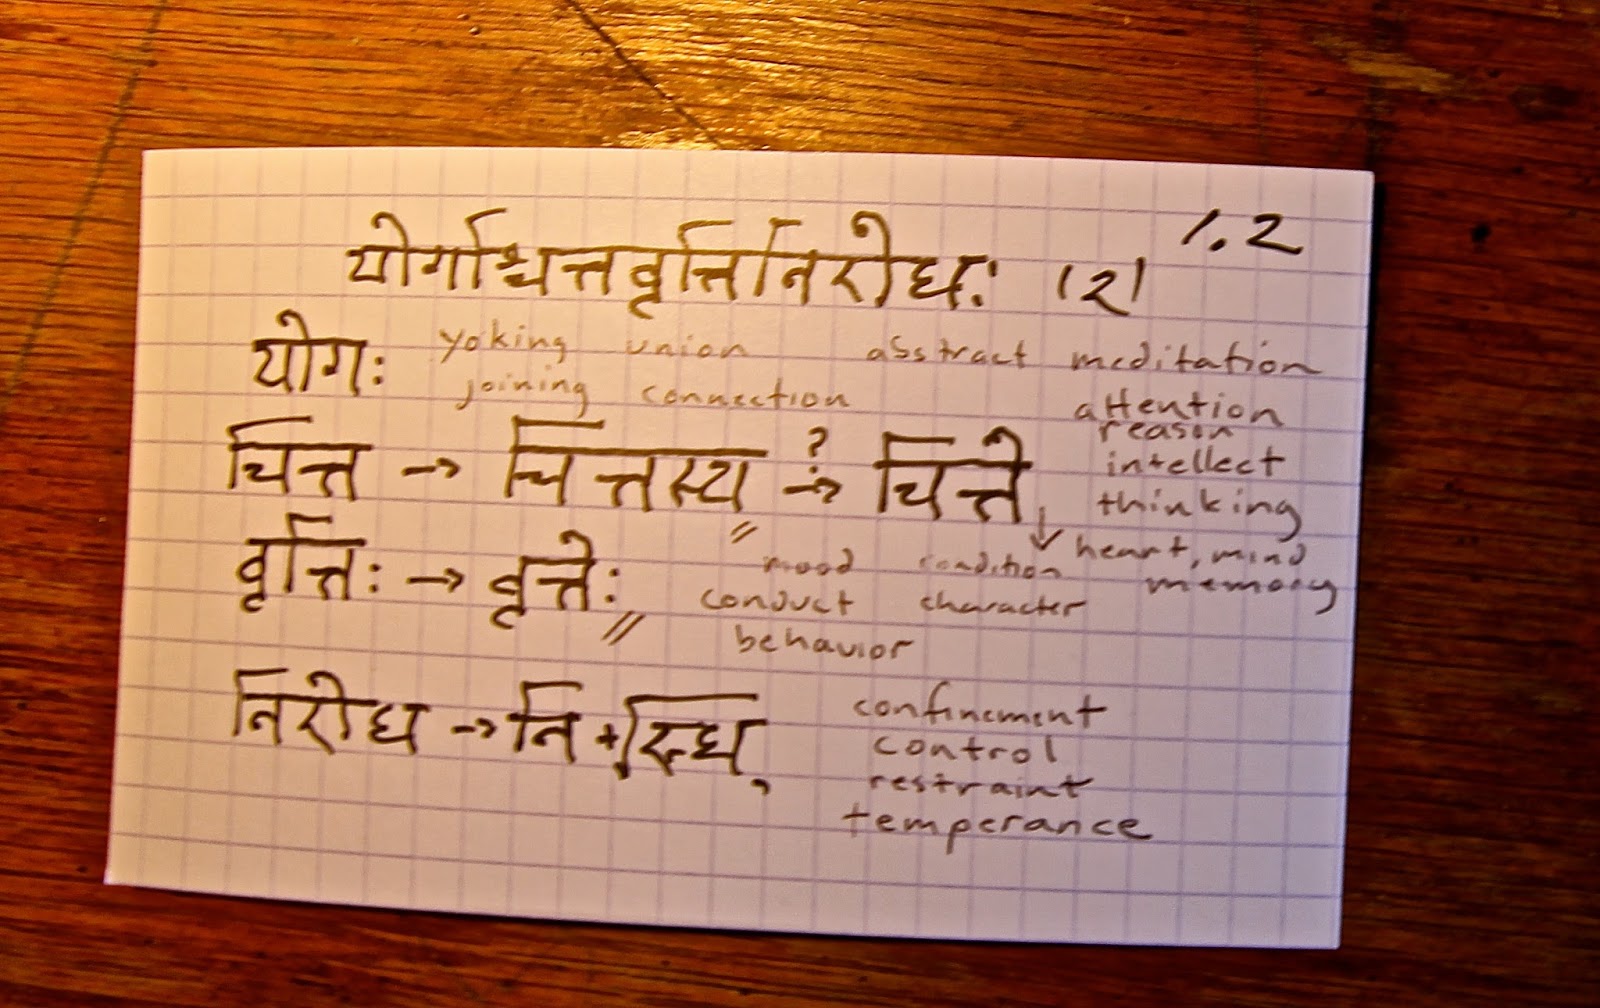 1.2
योगश्चित्तवृत्तिनिरोधः ।२।
योगः yoking union abstract meditation
joining connection attention
reason
चित्त → चित्तस्य ?→ चित्ते intellect
thinking
heart, mind
वृत्तिः → वृत्तेः mood condition memory
conduct character
behavior
निरोध → नि + √रुन्ध् confinement
control
restraint
temperance